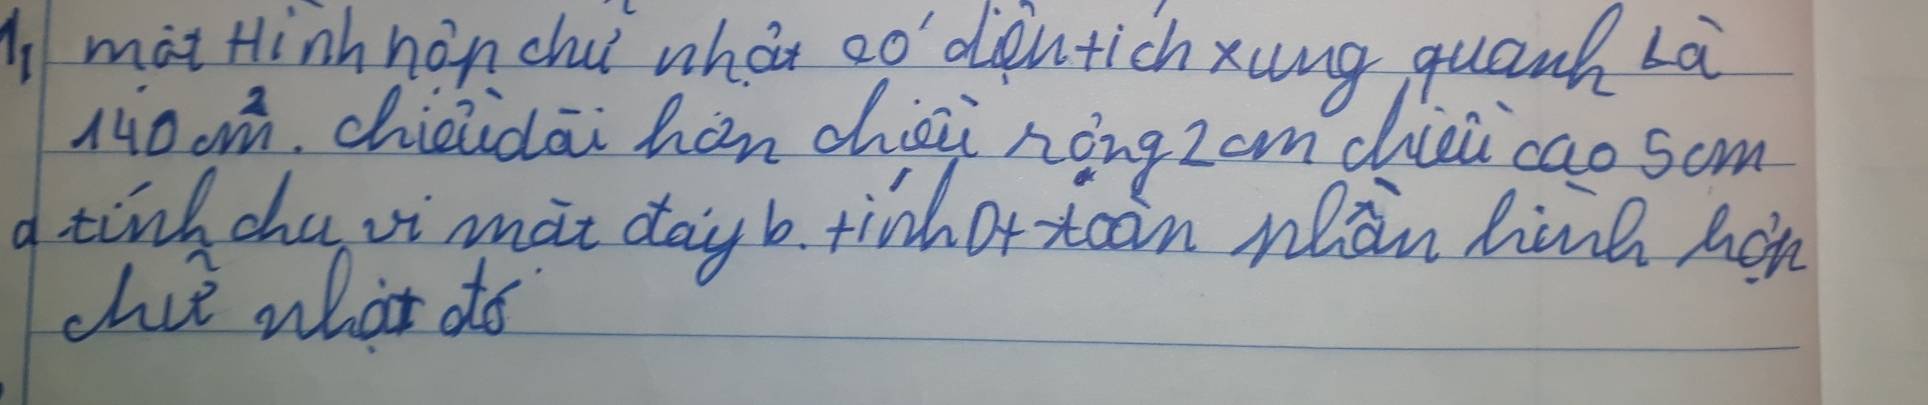 1, một Hình hộp chữ nhật có diện tích xung quanh Là
140 cm². chiều dài hơn chiều rộng 2 cm chiều cao 5 cm
a tính chu vi mặt đáy b. tính Dt toàn phần hình hộp
chữ nhật đó